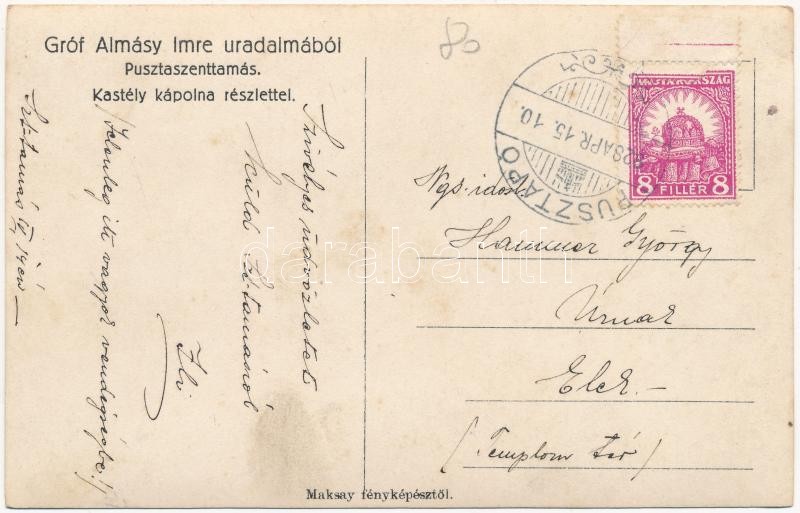 Gróf Almásy Imre uradalmából
Pusztaszenttamás.
Kastély kápolna részlettel.
80
Szívélyes üdvözletet
küld Sz.tamásról
Ili
(Jelenleg itt vagyok vendégségbe!)
Szt.tamás IV/14én
MAGYARORSZÁG
8 FILLÉR 8
PUSZTAPÓ
928 APR. 15. 10.
Ngs. idősb.
Hammer György
Úrnak
Elek.—
(Templom tér)
Maksay fényképésztől.
darabanth